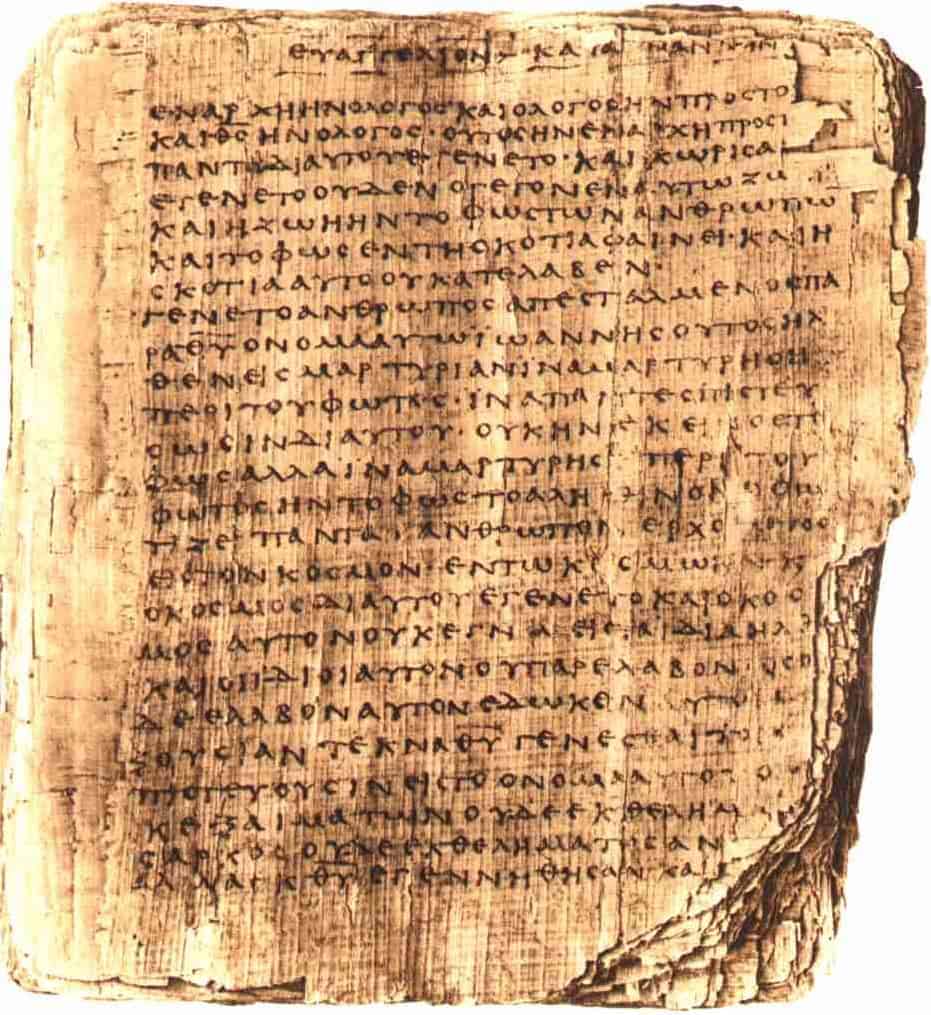 ΕΥΑΓΓΕΛΙΟΝ ΚΑΤΑ
ΕΝΑΡΧΗΗΝΟΛΟΓΟΣΚΑΙΟΛΟΓΟΣΗΝΠΡΟΣΤΟ
ΚΑΙΘΣΗΝΟΛΟΓΟΣ·ΟΥΤΟΣΗΝΕΝΑΡΧΗΠΡΟΣΤ
ΠΑΝΤΑΔΙΑΥΤΟΥΕΓΕΝΕΤΟ·ΚΑΙΧΩΡΙΣΑ
ΕΓΕΝΕΤΟΟΥΔΕΝΟΓΕΓΟΝΕΝΑΥΤΩΖΩ
ΚΑΙΗΖΩΗΗΝΤΟΦΩΣΤΩΝΑΝΘΡΩΠΩ
ΚΑΙΤΟΦΩΣΕΝΤΗΣΚΟΤΙΑΦΑΙΝΕΙ·ΚΑΙΗ
ΣΚΟΤΙΑΑΥΤΟΟΥΚΑΤΕΛΑΒΕΝ·
ΓΕΝΕΤΟΑΝΘΡΩΠΟΣΑΠΕΣΤΑΛΜΕΝΟΣΠΑ
ΡΑΘΥΟΝΟΜΑΑΥΤΩΙΩΑΝΝΗΣΟΥΤΟΣΗΛ
ΘΕΝΕΙΣΜΑΡΤΥΡΙΑΝΙΝΑΜΑΡΤΥΡΗΣΗ
ΠΕΡΙΤΟΥΦΩΤΟΣ·ΙΝΑΠΑΝΤΕΣΠΙΣΤΕΥ
ΣΩΣΙΝΔΙΑΥΤΟΥ·ΟΥΚΗΝΕΚΕΙΝΟΣΤΟ
ΦΩΣΑΛΛΑΙΝΑΜΑΡΤΥΡΗΣ ΠΕΡΙΤΟΥ
ΦΩΤΟΣΗΝΤΟΦΩΣΤΟΑΛΗΘΙΝΟΝΟΦΩ
ΤΙΖΕΙΠΑΝΤΑΑΝΘΡΩΠΟΝΕΡΧΟΜΕΝΟ
ΕΙΣΤΟΝΚΟΣΜΟΝ·ΕΝΤΩΚΟΣΜΩΗΝΚ
ΟΚΟΣΜΟΣΔΙΑΥΤΟΥΕΓΕΝΕΤΟΚΑΙΟΚΟΣ
ΜΟΣΑΥΤΟΝΟΥΚΕΓΝΩΕΙΣΤΑΙΔΙΑΗΛΘ
ΚΑΙΟΙΙΔΙΟΙΑΥΤΟΝΟΥΠΑΡΕΛΑΒΟΝ·ΟΣΟΙ
ΔΕΕΛΑΒΟΝΑΥΤΟΝΕΔΩΚΕΝΑΥΤΟΙ
ΞΟΥΣΙΑΝΤΕΚΝΑΘΥΓΕΝΕΣΘΑΙΤΟΙΣ
ΠΙΣΤΕΥΟΥΣΙΝΕΙΣΤΟΟΝΟΜΑΑΥΤΟΥΟ
ΚΕΞΑΙΜΑΤΩΝΟΥΔΕΕΚΘΕΛΗΜ
ΣΑΡΚΟΣΟΥΔΕΕΚΘΕΛΗΜΑΤΟΣΑΝ
ΑΛΛΑΕΚΘΥΕΓΕΝΝΗΘΗΣΑΝΚΑΙ